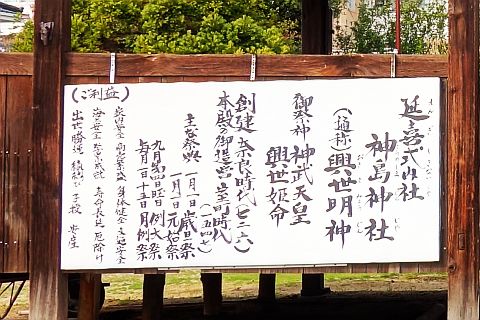 延喜式内社
神島神社
(通称)興世明神
御祭神 神武天皇
興世姫命
創建 奈良時代(七三六)
本殿の御造営 室町時代
(一五四七)
主な祭典 一月一日歳旦祭
一月十一日元始祭
九月第四日曜日例大祭
毎月一日十五日月例祭
(ご利益)
家内安全 商売繁盛 身体健全 交通安全
海上安全 大漁成就 寿命長延 厄除け
出世勝運 縁結び 子授 安産